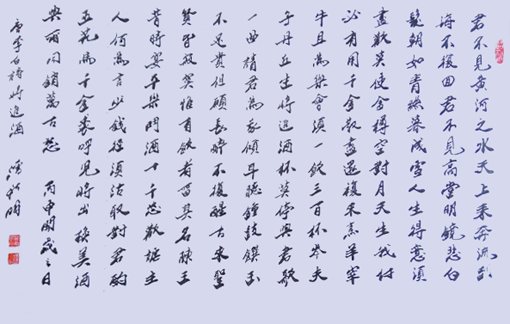 君不見黃河之水天上來奔流到
海不復回君不見高堂明鏡悲白
髮朝如青絲暮成雪人生得意須
盡歡莫使金樽空對月天生我材
必有用千金散盡還復來烹羊宰
牛且為樂會須一飲三百杯岑夫
子丹丘生將進酒杯莫停與君歌
一曲請君為我傾耳聽鐘鼓饌玉
不足貴但願長醉不復醒古來聖
賢皆寂寞惟有飲者留其名陳王
昔時宴平樂斗酒十千恣歡謔主
人何為言少錢徑須沽取對君酌
五花馬千金裘呼兒將出換美酒
與爾同銷萬古愁 丙申開歲之日
唐李白詩將進酒